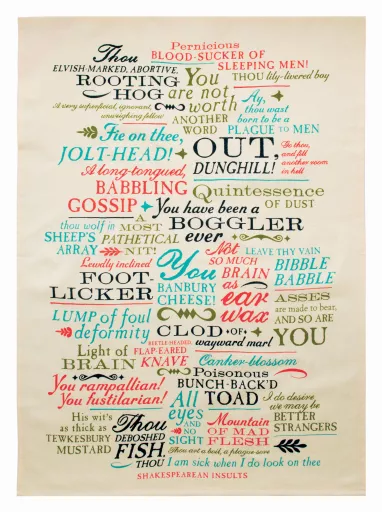 Pernicious
BLOOD-SUCKER OF
SLEEPING MEN!
Thou
ELVISH-MARKED, ABORTIVE,
ROOTING
HOG
You
are not
worth
ANOTHER
WORD
THOU lily-livered boy
A very superficial, ignorant,
unweighing fellow
Ay,
thou wast
born to be a
PLAGUE TO MEN
Fie on thee,
JOLT-HEAD!
OUT,
DUNGHILL!
Go thou,
and fill
another room
in hell
A long-tongued,
BABBLING
GOSSIP
Quintessence
OF DUST
You have been a
BOGGLER
ever
thou wolf in
SHEEP'S
ARRAY
A
MOST
PATHETICAL
NIT!
Lewdly inclined
FOOT-
LICKER
You
BANBURY
CHEESE!
Not
SO MUCH
BRAIN
as
ear
wax
LEAVE THY VAIN
BIBBLE
BABBLE
ASSES
are made to bear,
AND SO ARE
YOU
LUMP of foul
deformity
CLOD OF
wayward marl
Light of
BRAIN
BEETLE-HEADED,
FLAP-EARED
KNAVE
Canker-blossom
You rampallian!
You fustilarian!
Poisonous
BUNCH-BACK'D
TOAD
All
eyes
AND
NO
SIGHT
I do desire
we may be
BETTER
STRANGERS
His wit's
as thick as
TEWKESBURY
MUSTARD
Thou
DEBOSHED
FISH.
Mountain
OF MAD
FLESH
Thou art a boil, a plague sore
THOU I am sick when I do look on thee
SHAKESPEAREAN INSULTS